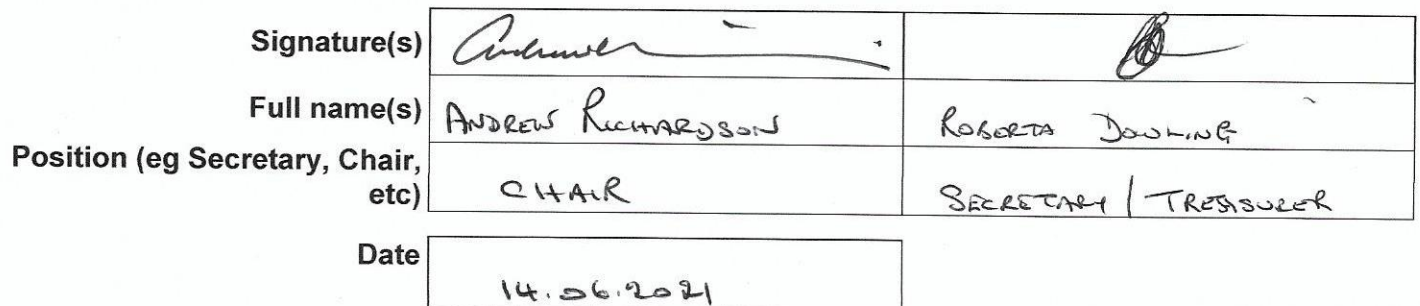 Signature(s)
Full name(s) ANDREW RICHARDSON ROBERTA DOWLING
Position (eg Secretary, Chair,
etc) CHAIR SECRETARY / TREASURER
Date 14.06.2021